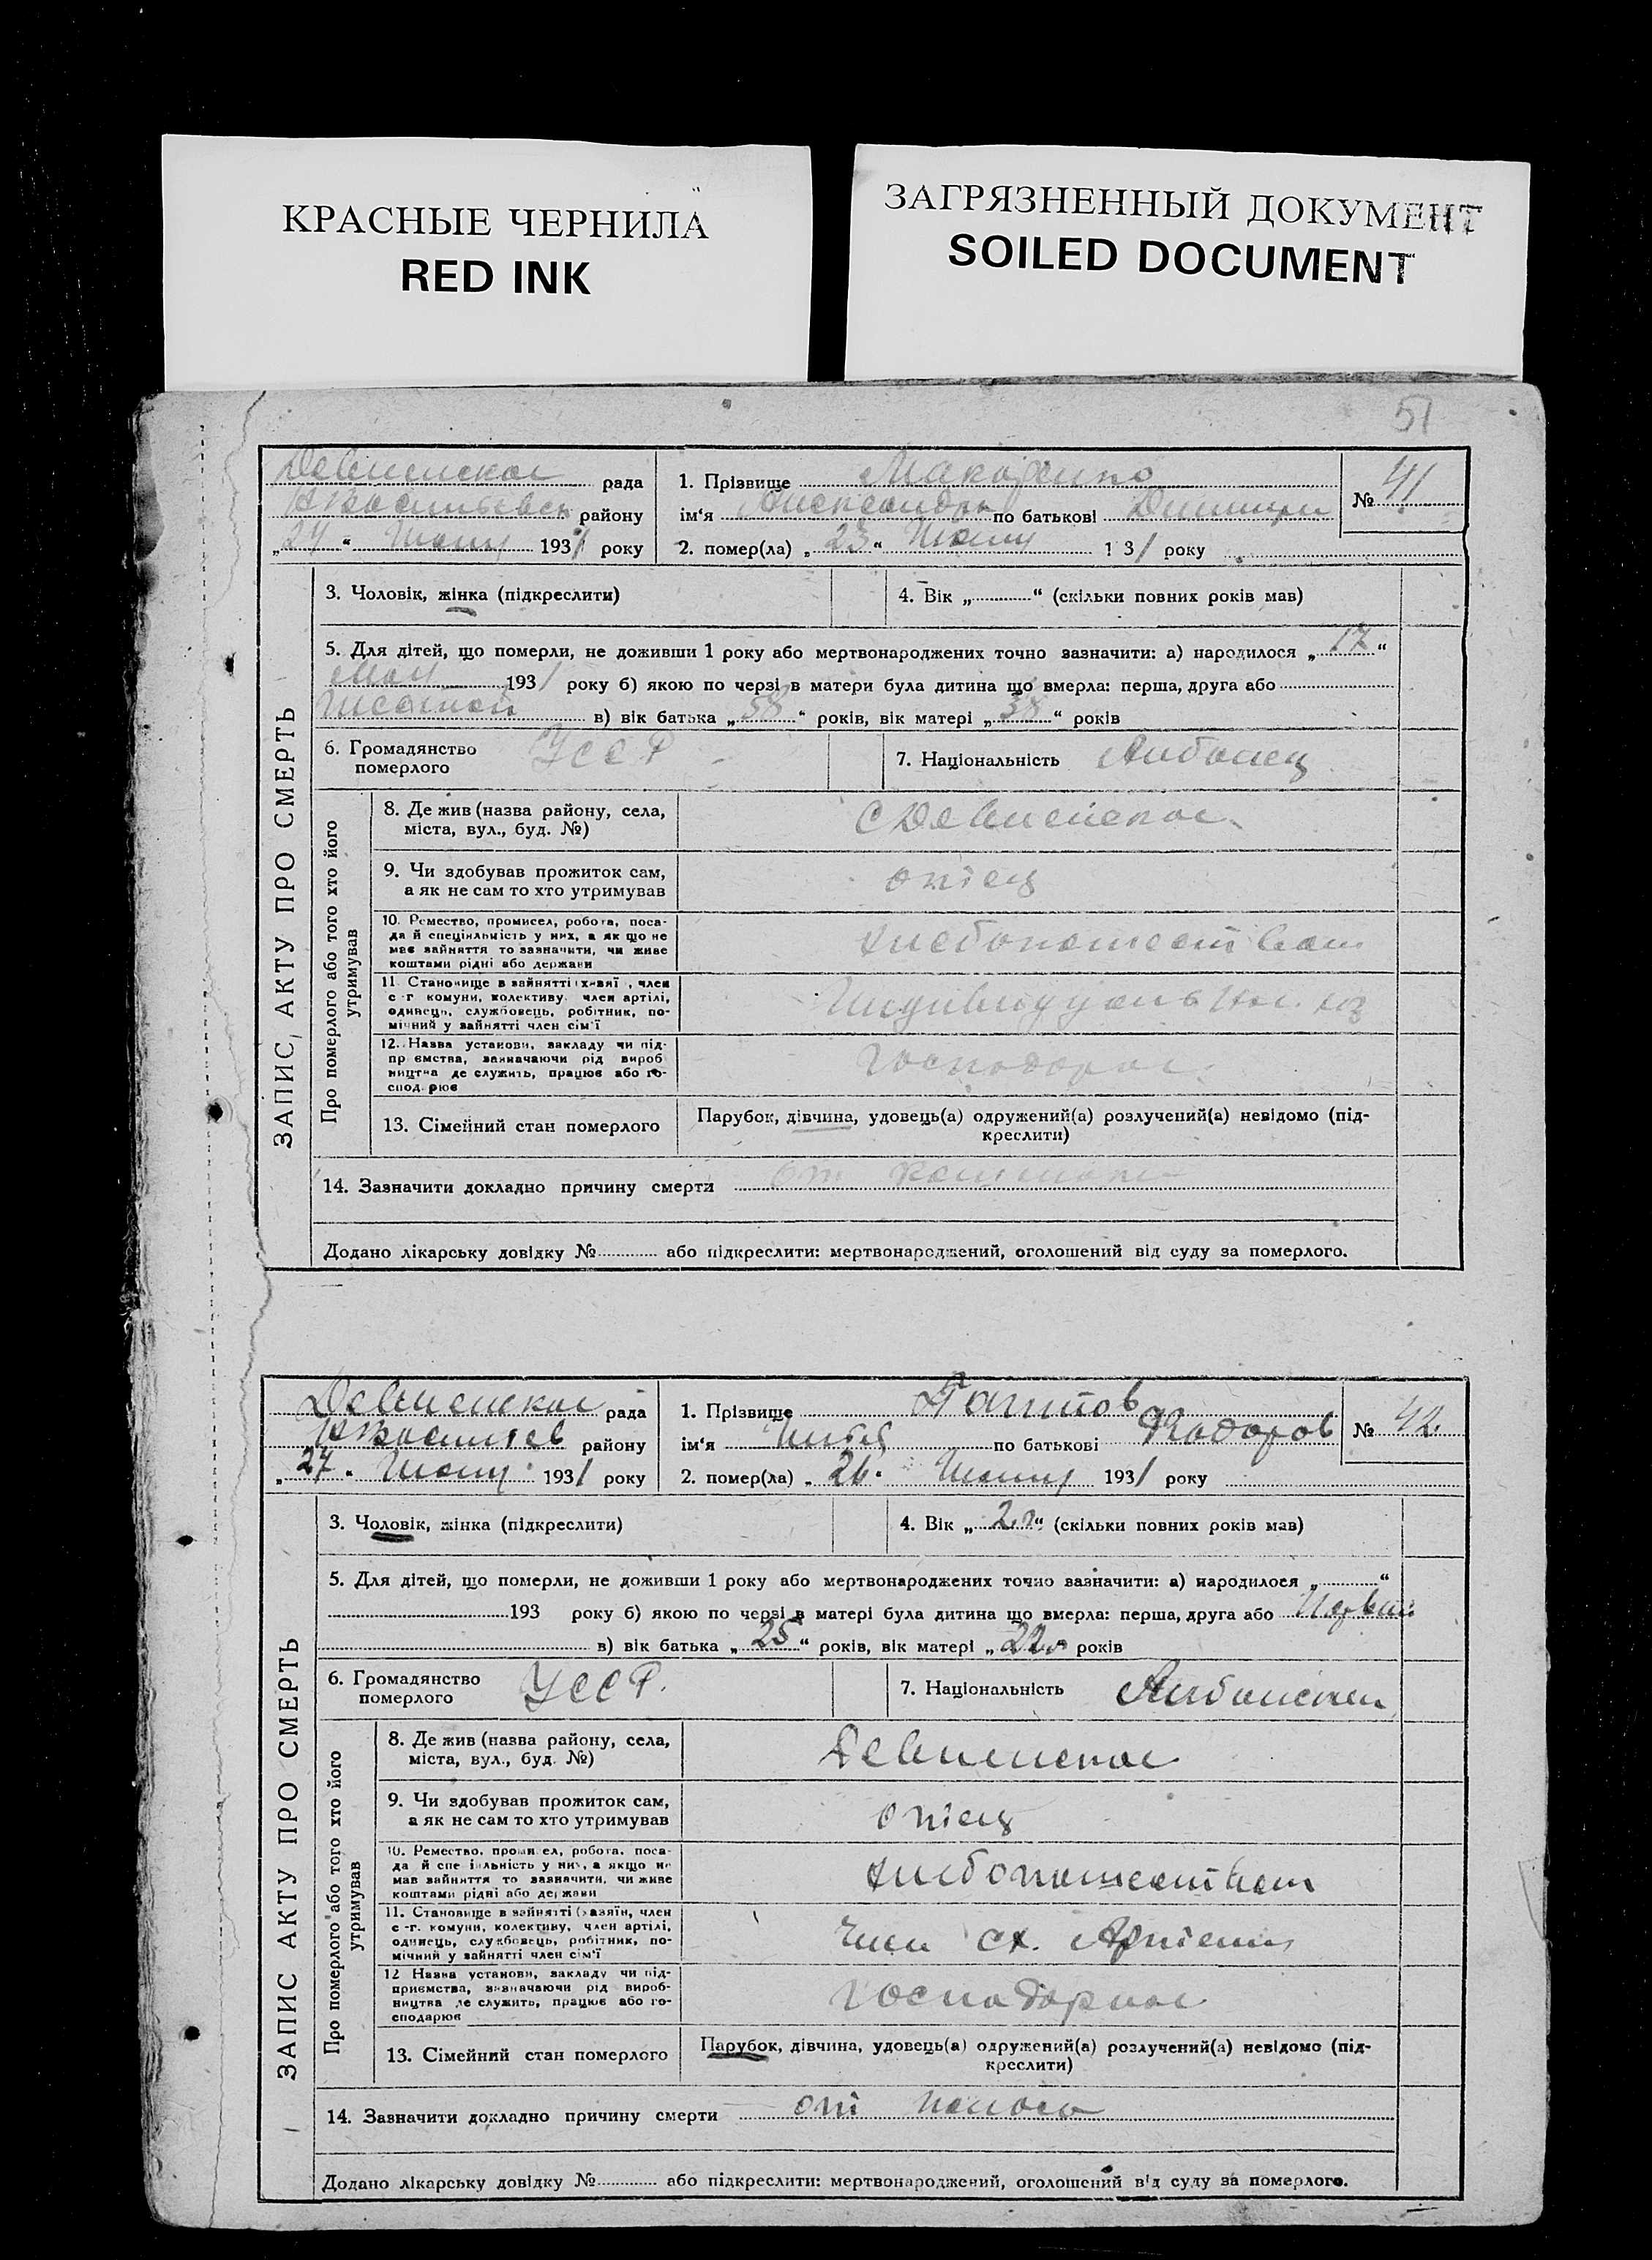 КРАСНЫЕ ЧЕРНИЛА
RED INK
ЗАГРЯЗНЕННЫЙ ДОКУМЕНТ
SOILED DOCUMENT
51
Девненское рада
району
„24“ 1931 року
1. Прізвище
ім‘я по батькові
2. помер(ла) „23“ 1 31 року
№ 41
3. Чоловік, жінка (підкреслити)
4. Вік „ “ (скільки повних років мав)
5. Для дітей, що померли, не доживши 1 року або мертвонароджених точно зазначити: а) народилося „17“
Мая 1931 року б) якою по черзі в матери була дитина що вмерла: перша, друга або
в) вік батька „58“ років, вік матері „38“ років
6. Громадянство
померлого
УССР
7. Національність
Албанец
ЗАПИС АКТУ ПРО СМЕРТЬ
Про померлого або того хто його
утримував
8. Де жив (назва району, села,
міста, вул., буд. №)
9. Чи здобував прожиток сам,
а як не сам то хто утримував
отец
10. Ремество, промисел, робота, поса-
да й спеціяльність у них, а як що не
має зайняття то зазначити, чи живе
коштами рідні або держави
хлебопашеством
11 Становище в зайнятті член
с-г комуни, колективу, член артілі,
одинець, службовець, робітник, по-
мічний у зайнятті член сім‘ї
12. Назва установи, закладу чи під-
пр ємства, зазначаючи рід вироб
ництва де служить, працює або го-
спод рює
13. Сімейний стан померлого
Парубок, дівчина, удовець(а) одружений(а) розлучений(а) невідомо (під-
креслити)
14. Зазначити докладно причину смерти от
Додано лікарську довідку № або підкреслити: мертвонароджений, оголошений від суду за померлого.
Девненское рада
району
„27“ 1931 року
1. Прізвище
ім‘я по батькові Федоров
2. помер(ла) „26“ 1931 року
№ 42
3. Чоловік, жінка (підкреслити)
4. Вік „2 “ (скільки повних років мав)
5. Для дітей, що померли, не доживши 1 року або мертвонароджених точно зазначити: а) народилося „ “
193 року б) якою по черзі в матері була дитина що вмерла: перша, друга або
в) вік батька „25“ років, вік матері „22“ років
6. Громадянство
померлого
УССР.
7. Національність
ЗАПИС АКТУ ПРО СМЕРТЬ
Про померлого або того хто його
утримував
8. Де жив (назва району, села,
міста, вул., буд. №)
Девненское
9. Чи здобував прожиток сам,
а як не сам то хто утримував
отец
10. Ремество, промисел, робота, поса-
да й спеціяльність у них, а якщо не
мав зайняття то зазначити, чи живе
коштами рідні або держави
хлебопашеством
11. Становище в зайнятті (хазяїн, член
с-г. комуни, колективу, член артілі,
одинець, службовець, робітник, по-
мічний у зайнятті член сім‘ї
Член сх. Артели
12 Назва установи, закладу чи під-
приємства, зазначаючи рід вироб-
ництва де служить, працює або го-
сподарює
13. Сімейний стан померлого
Парубок, дівчина, удовець(а) одружений(а) розлучений(а) невідомо (під-
креслити)
14. Зазначити докладно причину смерти от поноса
Додано лікарську довідку № або підкреслити: мертвонароджений, оголошений від суду за померлого.